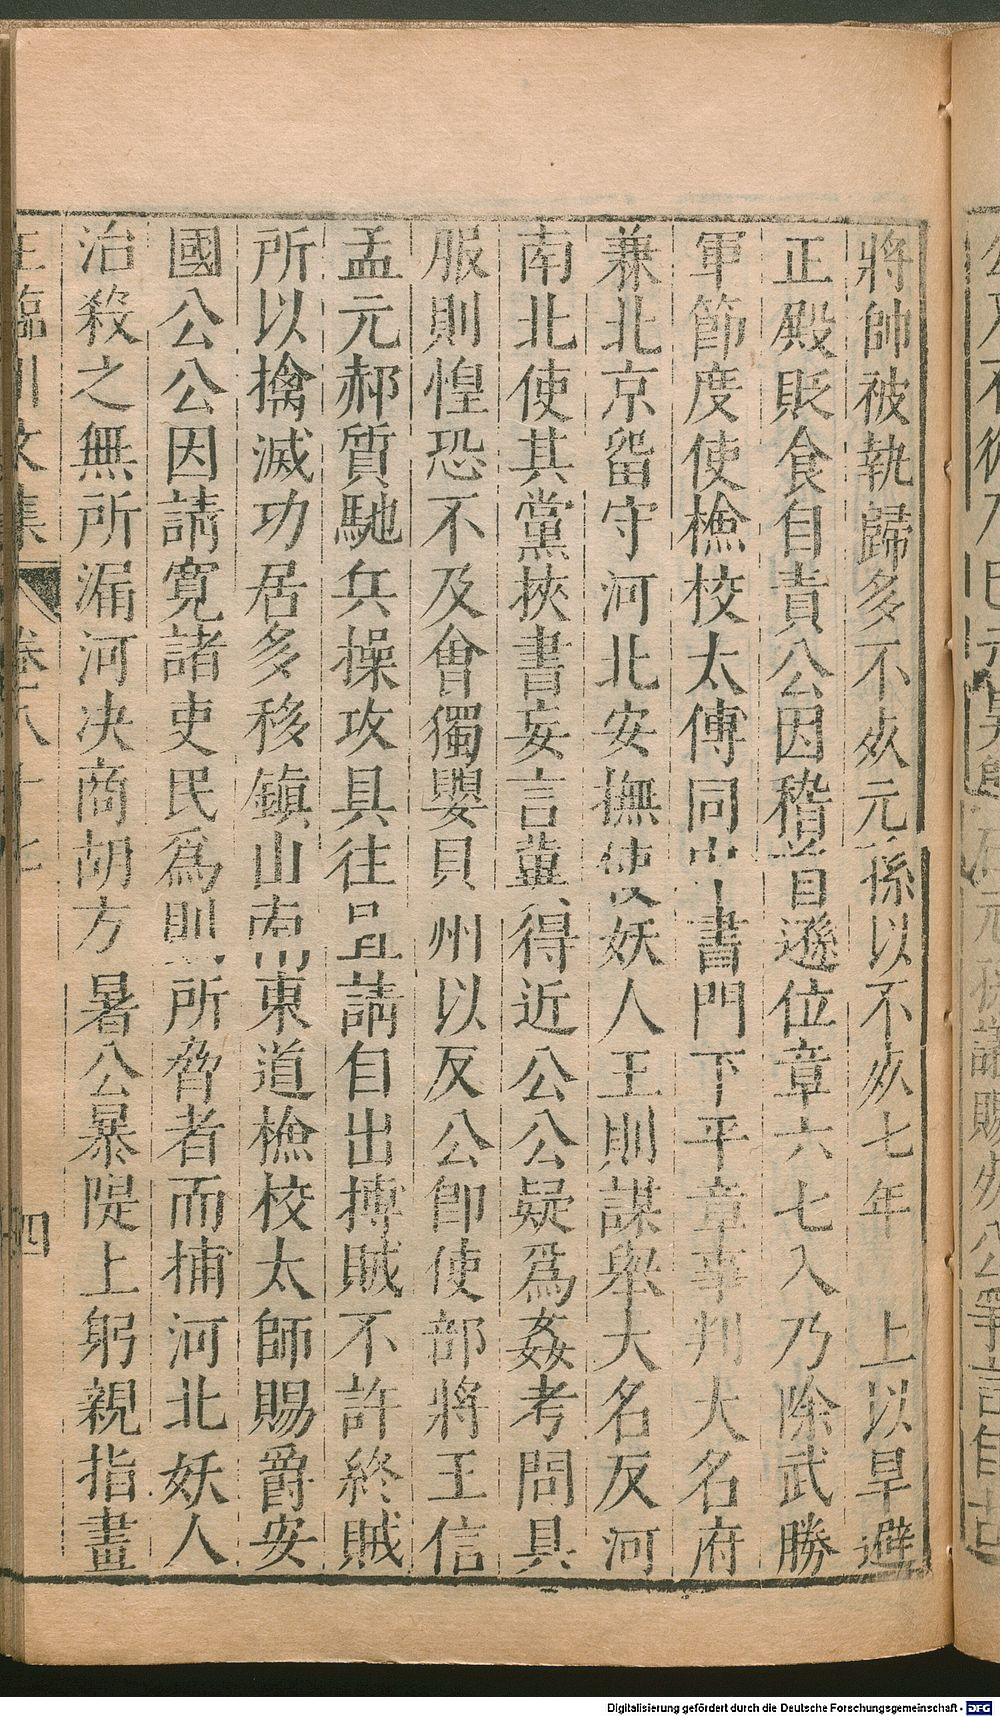 將帥被執歸多不死元孫以不死七年 上以旱避
正殿貶食自責公因稽首遜位章六七入乃除武勝
軍節度使檢校太傅同中書門下平章事判大名府
兼北京留守河北安撫使妖人王則謀舉大名反河
南北使其黨挾書妄言冀得近公公疑為姦考問具
服則惶恐不及會獨嬰貝州以反公即使部將王信
孟元郝質馳兵操攻具往且請自出搏賊不許終賊
所以擒滅功居多移鎮山南東道檢校太師賜爵安
國公公因請寬諸吏民為則所脅者而捕河北妖人
治殺之無所漏河決商胡方暑公暴隄上躬親指畫
王臨川文集 卷八十七 四
Digitalisierung gefördert durch die Deutsche Forschungsgemeinschaft - DFG